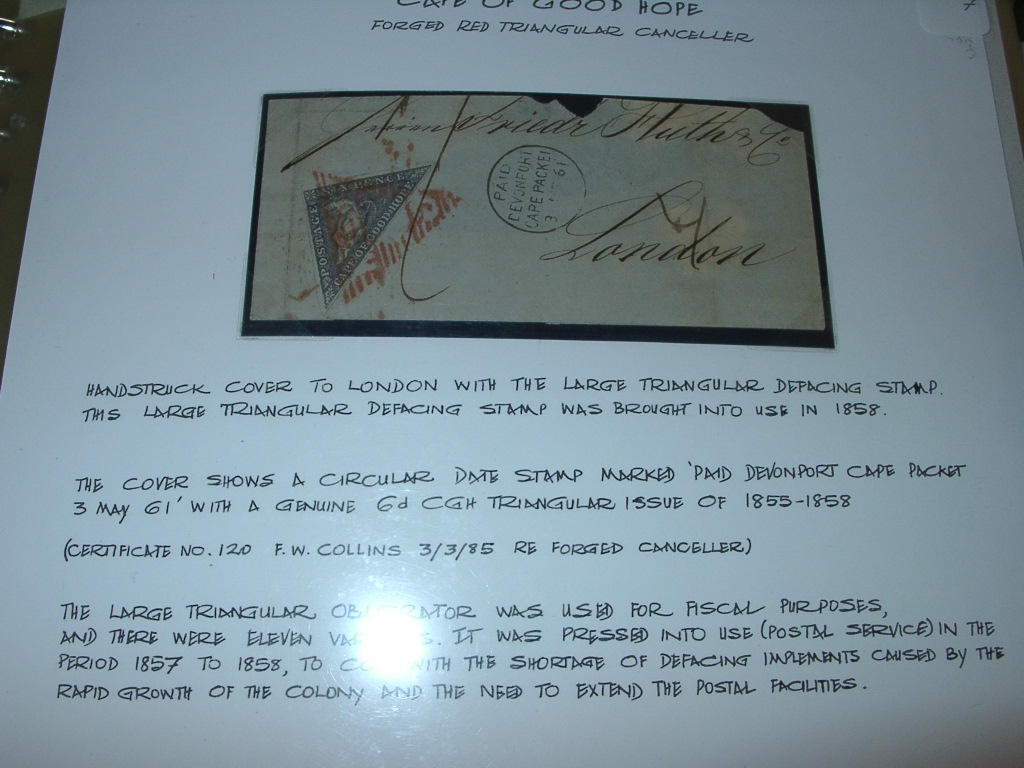 CAPE OF GOOD HOPE
FORGED RED TRIANGULAR CANCELLER
Friedr Huth & Co
SIX PENCE
POSTAGE
CAPE OF GOOD HOPE
PAID
DEVONPORT
CAPE PACKET
3 61
London
HANDSTRUCK COVER TO LONDON WITH THE LARGE TRIANGULAR DEFACING STAMP.
THIS LARGE TRIANGULAR DEFACING STAMP WAS BROUGHT INTO USE IN 1858.
THE COVER SHOWS A CIRCULAR DATE STAMP MARKED 'PAID DEVONPORT CAPE PACKET
3 MAY 61' WITH A GENUINE 6d CGH TRIANGULAR ISSUE OF 1855-1858
(CERTIFICATE NO. 120 F.W. COLLINS 3/3/85 RE FORGED CANCELLER)
THE LARGE TRIANGULAR OBLITERATOR WAS USED FOR FISCAL PURPOSES,
AND THERE WERE ELEVEN WAS PRESSED INTO USE (POSTAL SERVICE) IN THE
PERIOD 1857 TO 1858, TO WITH THE SHORTAGE OF DEFACING IMPLEMENTS CAUSED BY THE
RAPID GROWTH OF THE COLONY AND THE NEED TO EXTEND THE POSTAL FACILITIES.